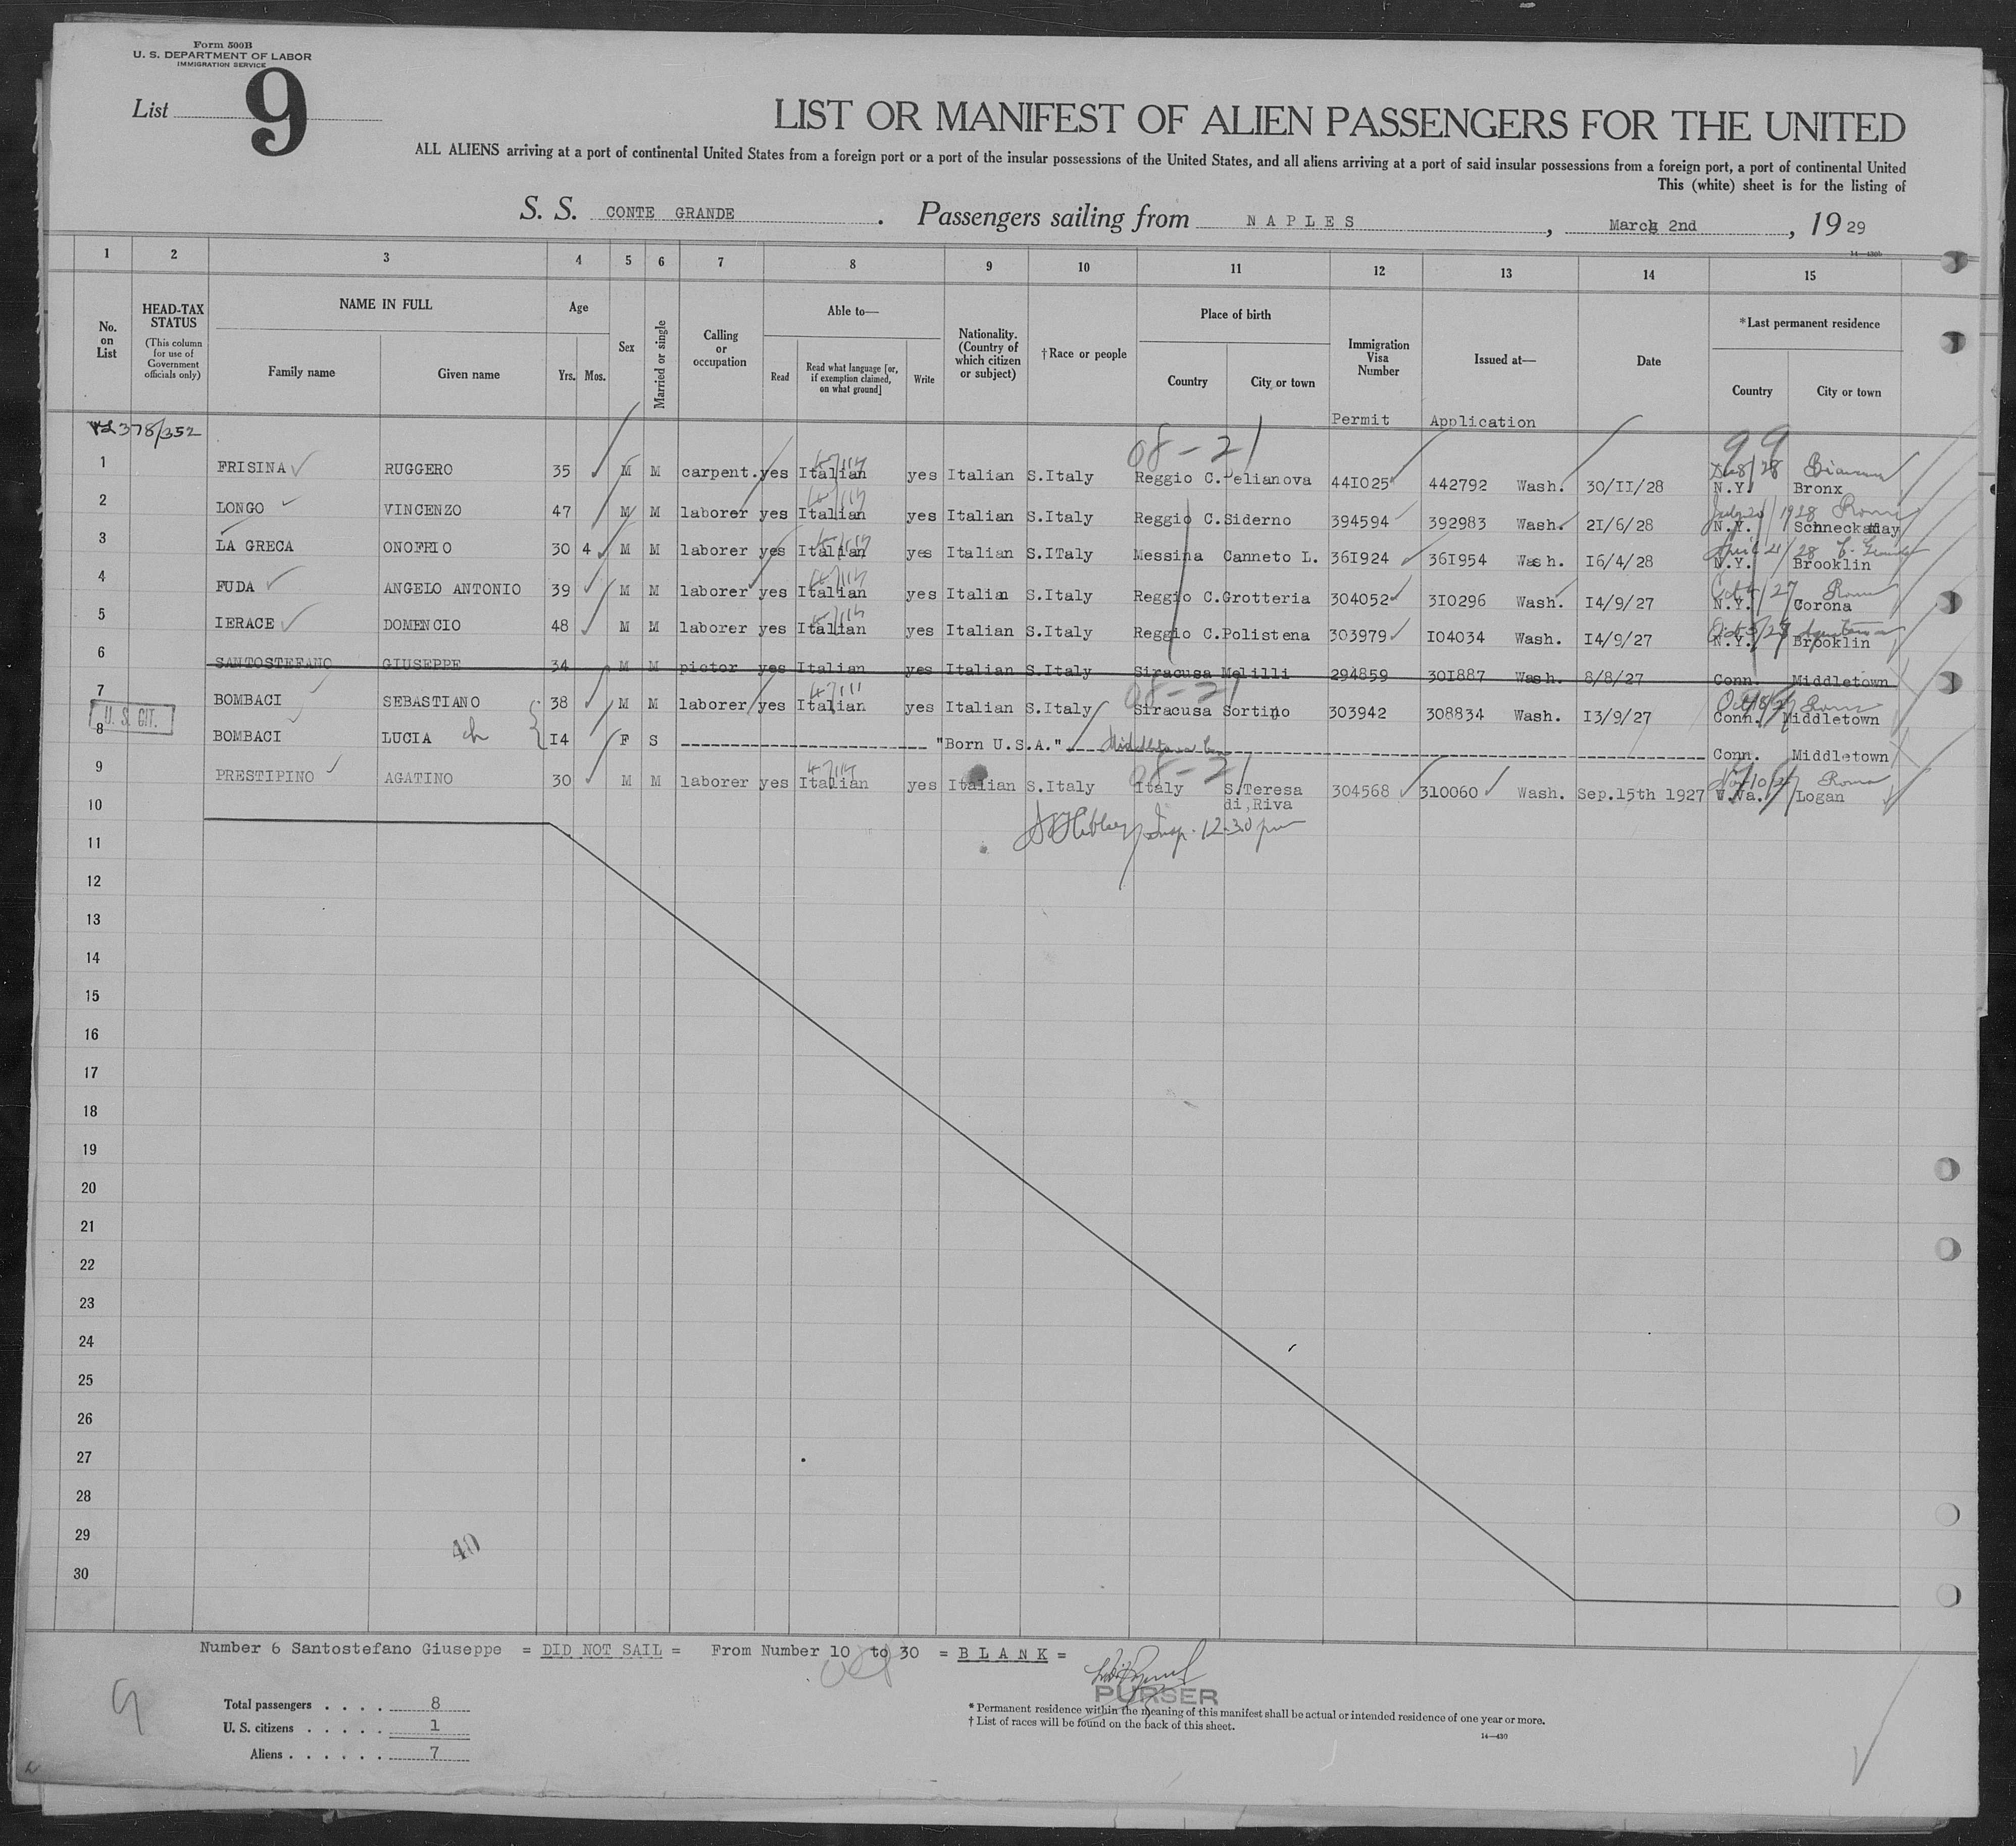 Form 500B
U. S. DEPARTMENT OF LABOR
IMMIGRATION SERVICE
List 9
LIST OR MANIFEST OF ALIEN PASSENGERS FOR THE UNITED
ALL ALIENS arriving at a port of continental United States from a foreign port or a port of the insular possessions of the United States, and all aliens arriving at a port of said insular possessions from a foreign port, a port of continental United
This (white) sheet is for the listing of
S. S. CONTE GRANDE. Passengers sailing from NAPLES, March 2nd, 1929
14—430b
1 2 3 4 5 6 7 8 9 10 11 12 13 14 15
No. on List
HEAD-TAX STATUS (This column for use of Government officials only)
NAME IN FULL
Family name Given name
Age
Yrs. Mos.
Sex
Married or single
Calling or occupation
Able to—
Read
Read what language [or, if exemption claimed, on what ground]
Write
Nationality. (Country of which citizen or subject)
†Race or people
Place of birth
Country City or town
Immigration Visa Number
Issued at—
Date
*Last permanent residence
Country City or town
Permit Application
378/352
08-21 99
1 FRISINA RUGGERO 35 M M carpent. yes Italian yes Italian S.Italy Reggio C. Pelianova 441025 442792 Wash. 30/II/28 N.Y. Bronx
2 LONGO VINCENZO 47 M M laborer yes Italian yes Italian S.Italy Reggio C. Siderno 394594 392983 Wash. 2I/6/28 N.Y. Schneckaday
3 LA GRECA ONOFRIO 30 4 M M laborer yes Italian yes Italian S.ITaly Messina Canneto L. 36I924 36I954 Wash. I6/4/28 N.Y. Brooklin
4 FUDA ANGELO ANTONIO 39 M M laborer yes Italian yes Italian S.Italy Reggio C. Grotteria 304052 3I0296 Wash. I4/9/27 N.Y. Corona
5 IERACE DOMENCIO 48 M M laborer yes Italian yes Italian S.Italy Reggio C. Polistena 303979 I04034 Wash. I4/9/27 N.Y. Brooklin
6 SANTOSTEFANO GIUSEPPE 34 M M pictor yes Italian yes Italian S.Italy Siracusa Melilli 294859 30I887 Wash. 8/8/27 Conn. Middletown
08-21
7 BOMBACI SEBASTIANO 38 M M laborer yes Italian yes Italian S.Italy Siracusa Sortino 303942 308834 Wash. I3/9/27 Conn. Middletown
U. S. CIT.
8 BOMBACI LUCIA ch I4 F S "Born U.S.A." Conn. Middletown
08-21
9 PRESTIPINO AGATINO 30 M M laborer yes Italian yes Italian S.Italy Italy S.Teresa di,Riva 304568 310060 Wash. Sep.15th 1927 W.Va. Logan
Insp. 12-30 pm
10
11
12
13
14
15
16
17
18
19
20
21
22
23
24
25
26
27
28
29
30
40
Number 6 Santostefano Giuseppe = DID NOT SAIL = From Number 10 to 30 = BLANK =
PURSER
9
Total passengers . . . . 8
U. S. citizens . . . . . 1
Aliens . . . . . . 7
* Permanent residence within the meaning of this manifest shall be actual or intended residence of one year or more.
† List of races will be found on the back of this sheet.
14—430